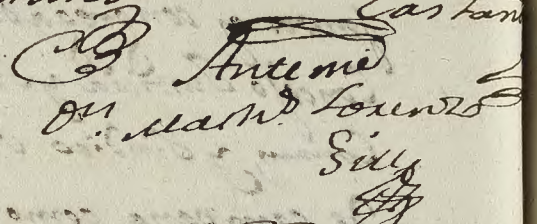 Castan
Ante mi
Dn. Math.º Lorenzo
Gill